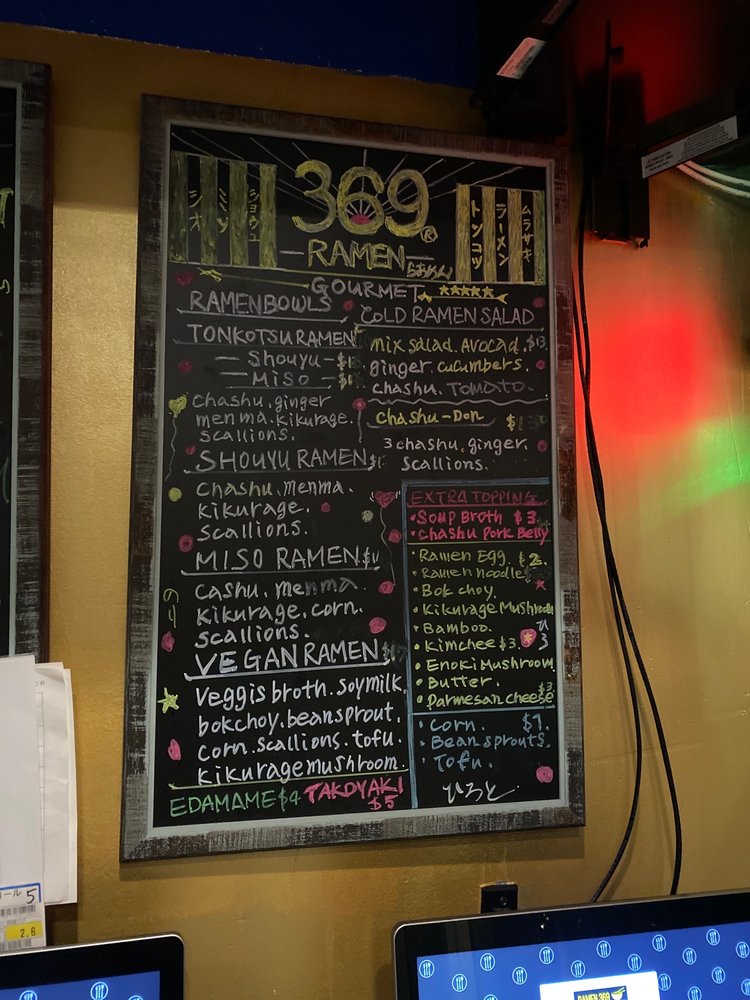 シオ
ミソ
ショウユ
369
トンコツ
ラーメン
ムラサキ
—RAMEN—
らぁめん
GOURMET
RAMEN BOWLS
TONKOTSU RAMEN
— Shouyu —
— MiSO —
Chashu. ginger
menma. kikurage.
scallions.
SHOUYU RAMEN
Chashu. menma.
Kikurage.
scallions.
MISO RAMEN
Cashu. menma.
Kikurage. corn.
scallions.
VEGAN RAMEN
Veggis broth. soymilk.
bokchoy. beansprout.
corn. scallions. tofu.
kikurage mushroom.
EDAMAME $4 TAKOYAKI
$5
COLD RAMEN SALAD
mix salad. Avocad. $13
ginger. cucumbers.
chashu. TOMATO.
Chashu-Don
3 chashu. ginger.
scallions.
EXTRA TOPPING
• Soup Broth $3
• Chashu Pork Belly
• Ramen Egg. $2.
• Ramen noodle
• Bok choy.
• Kikurage Mushroom
• Bamboo.
• Kimchee $3.
• Enoki Mushroom
• Butter.
• Parmesan cheese
$3
• Corn. $1.
• Bean sprouts.
• Tofu.
ひろと
5
2.6
RAMEN 369